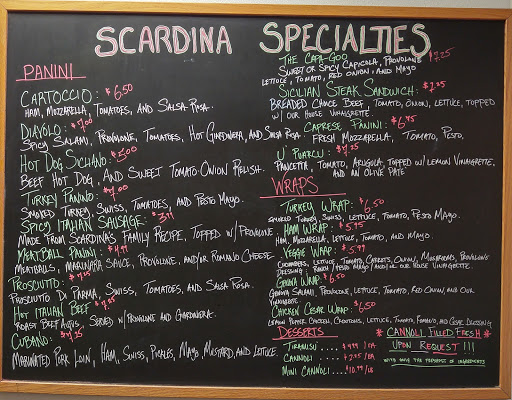 SCARDINA SPECIALTIES
PANINI
CARTOCCIO: $6.50
HAM, MOZZARELLA, TOMATOES, AND SALSA ROSA.
DIAVOLO: $7.00
SPICY SALAMI, PROVOLONE, TOMATOES, HOT GIARDINERA, AND SALSA ROSA.
HOT DOG SICILIANO: $5.00
BEEF HOT DOG, AND SWEET TOMATO-ONION RELISH.
TURKEY PANINO: $7.00
SMOKED TURKEY, SWISS, TOMATOES, AND PESTO MAYO.
SPICY ITALIAN SAUSAGE:
MADE FROM SCARDINA'S FAMILY RECIPE, TOPPED W/ PROVOLONE.
MEATBALL PANINI:
MEATBALLS, MARINARA SAUCE, PROVOLONE, AND/OR ROMANO CHEESE
PROSCIUTTO:
PROSCIUTTO DI PARMA, SWISS, TOMATOES, AND SALSA ROSA.
HOT ITALIAN BEEF
ROAST BEEF AUJUS, SERVED W/ PROVOLONE AND GIARDINERA.
CUBANO:
MARINATED PORK LOIN, HAM, SWISS, PICKLES, MAYO, MUSTARD, AND LETTUCE.
THE CAPA-GOO $7.25
SWEET OR SPICY CAPICOLA, PROVOLONE
LETTUCE, TOMATO, RED ONION AND MAYO
SICILIAN STEAK SANDWICH:
BREADED CHOICE BEEF, TOMATO, ONION, LETTUCE, TOPPED
W/ OUR HOUSE VINAIGRETTE.
CAPRESE PANINI: $6.95
FRESH MOZZARELLA, TOMATO, PESTO.
PANCETTA, TOMATO, ARUGULA, TOPPED W/ LEMON VINAIGRETTE,
AND AN OLIVE PATE
WRAPS
TURKEY WRAP: $6.50
SMOKED TURKEY, SWISS, LETTUCE, TOMATO, PESTO MAYO.
HAM WRAP: $5.95
HAM, MOZZARELLA, LETTUCE, TOMATO, AND MAYO.
VEGGIE WRAP: $5.99
CUCUMBERS, LETTUCE, TOMATO, CARROTS, ONION, MUSHROOMS, PROVOLONE
DRESSING: RANCH / PESTO MAYO / AND/OR OUR HOUSE VINAIGRETTE.
GENOA WRAP: $6.50
GENOA SALAMI, PROVOLONE, LETTUCE, TOMATO, RED ONION, AND OUR
VINAIGRETTE.
CHICKEN CESAR WRAP: $6.50
LEMON PEPPER CHICKEN, CROUTONS, LETTUCE, TOMATO, ROMANO, AND CESAR DRESSING
DESSERTS
TIRAMISU .... /EA
CANNOLI .... /EA
MINI CANNOLI .... $10.99
* CANNOLI FILLED FRESH *
UPON REQUEST!!!
WITH ONLY THE FRESHEST OF INGREDIENTS